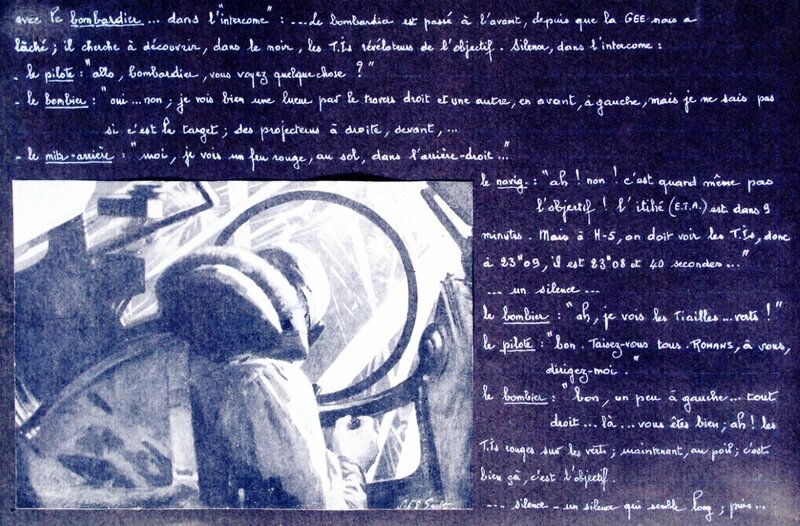 avec le bombardier... dans l'"intercome" : ...Le bombardier est passé à l'avant, depuis que la GEE nous a
lâché ; il cherche à découvrir, dans le noir, les T.Is révélateurs de l'objectif. Silence, dans l'intercome :
- le pilote : "allo, bombardier, vous voyez quelque chose ?"
- le bombier : "oui... non ; je vois bien une lueur par le travers droit et une autre, en avant, à gauche, mais je ne sais pas
si c'est le target ; des projecteurs à droite, devant, ...
- le mitr-arrière : "moi, je vois un feu rouge, au sol, dans l'arrière-droit..."
le navig : "ah ! non ! c'est quand même pas
l'objectif ! l'itihé (E.T.A.) est dans 9
minutes. Mais à H-5, on doit voir les T.Is, donc
à 23"09, il est 23"08 et 40 secondes..."
--- un silence ---
le bombier : "ah, je vois les Tiailles... verts !"
le pilote : "bon. Taisez-vous tous. ROMANS, à vous,
dirigez-moi."
le bombier : "bon, un peu à gauche... tout
droit... là... vous êtes bien ; ah ! les
T.Is rouges sur les verts ; maintenant, au poil ; c'est
bien çà, c'est l'objectif.
--- silence - un silence qui semble long ; puis...